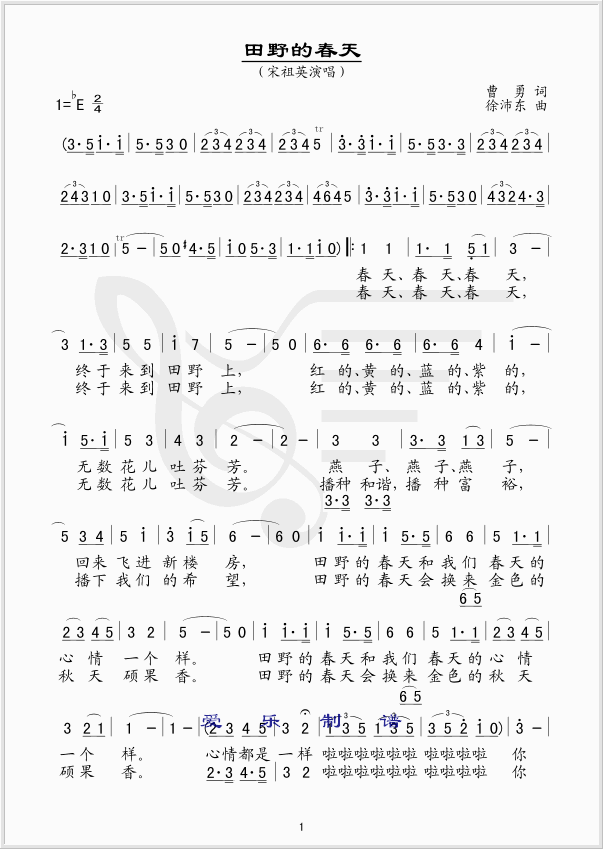 田野的春天
（宋祖英演唱）
曹 勇 词
1=♭E 2/4
徐沛东 曲
(3·5i·i | 5·530 | 234234 | 2345 tr | 3·3i·i | 5·53·3 | 234234 |
24310 | 3·5i·i | 5·530 | 234234 | 64645 | 3·3i·i | 5·530 | 4324·3 |
2·310 | tr 5 － | 50#4·5 | i05·3 | 1·1i0) ‖: 1 1 | 1· 1 51 | 3 － |
春 天、春 天、春 天，
春 天、春 天、春 天，
3 1·3 | 5 5 | i 7 | 5 － | 5 0 | 6· 6 6 | 6· 6 4 | i － |
终于 来到 田野 上， 红 的、黄 的、蓝 的、紫 的，
终于 来到 田野 上， 红 的、黄 的、蓝 的、紫 的，
i 5·i | 5 3 | 4 3 | 2 － | 2 － | 3 3 | 3·3 13 | 5 － |
无数 花儿 吐芬 芳。 燕 子、燕 子、燕 子，
无数 花儿 吐芬 芳。 播种 和谐，播 种 富 裕，
3·3 3·3
5 34 | 5 i | 3 i | 5 － | 5 0 | i i·i | i 5·5 | 6 6 | 5 1·1 |
回来 飞进 新楼 房， 田野的 春天和 我们 春天的
播下 我们 的希 望， 田野的 春天会 换来 金色的
6 5
23 45 | 3 2 | 5 － | 5 0 | i i·i | i 5·5 | 6 6 | 5 1·1 | 23 45 |
心 情 一个 样。 田野的 春天和 我们 春天的 心 情
秋 天 硕果 香。 田野的 春天会 换来 金色的 秋 天
6 5
3 21 | 1 － | 1 － | (23 45 | 3 2 | 135 135 | 135 135 | 352·i0) | 3 － |
爱 乐 制 谱
一个 样。 心情都是 一样 啦啦啦啦啦 啦啦啦啦 你
硕果 香。 2·3 4·5 | 3 2 啦啦啦啦啦 啦啦啦啦 你
1